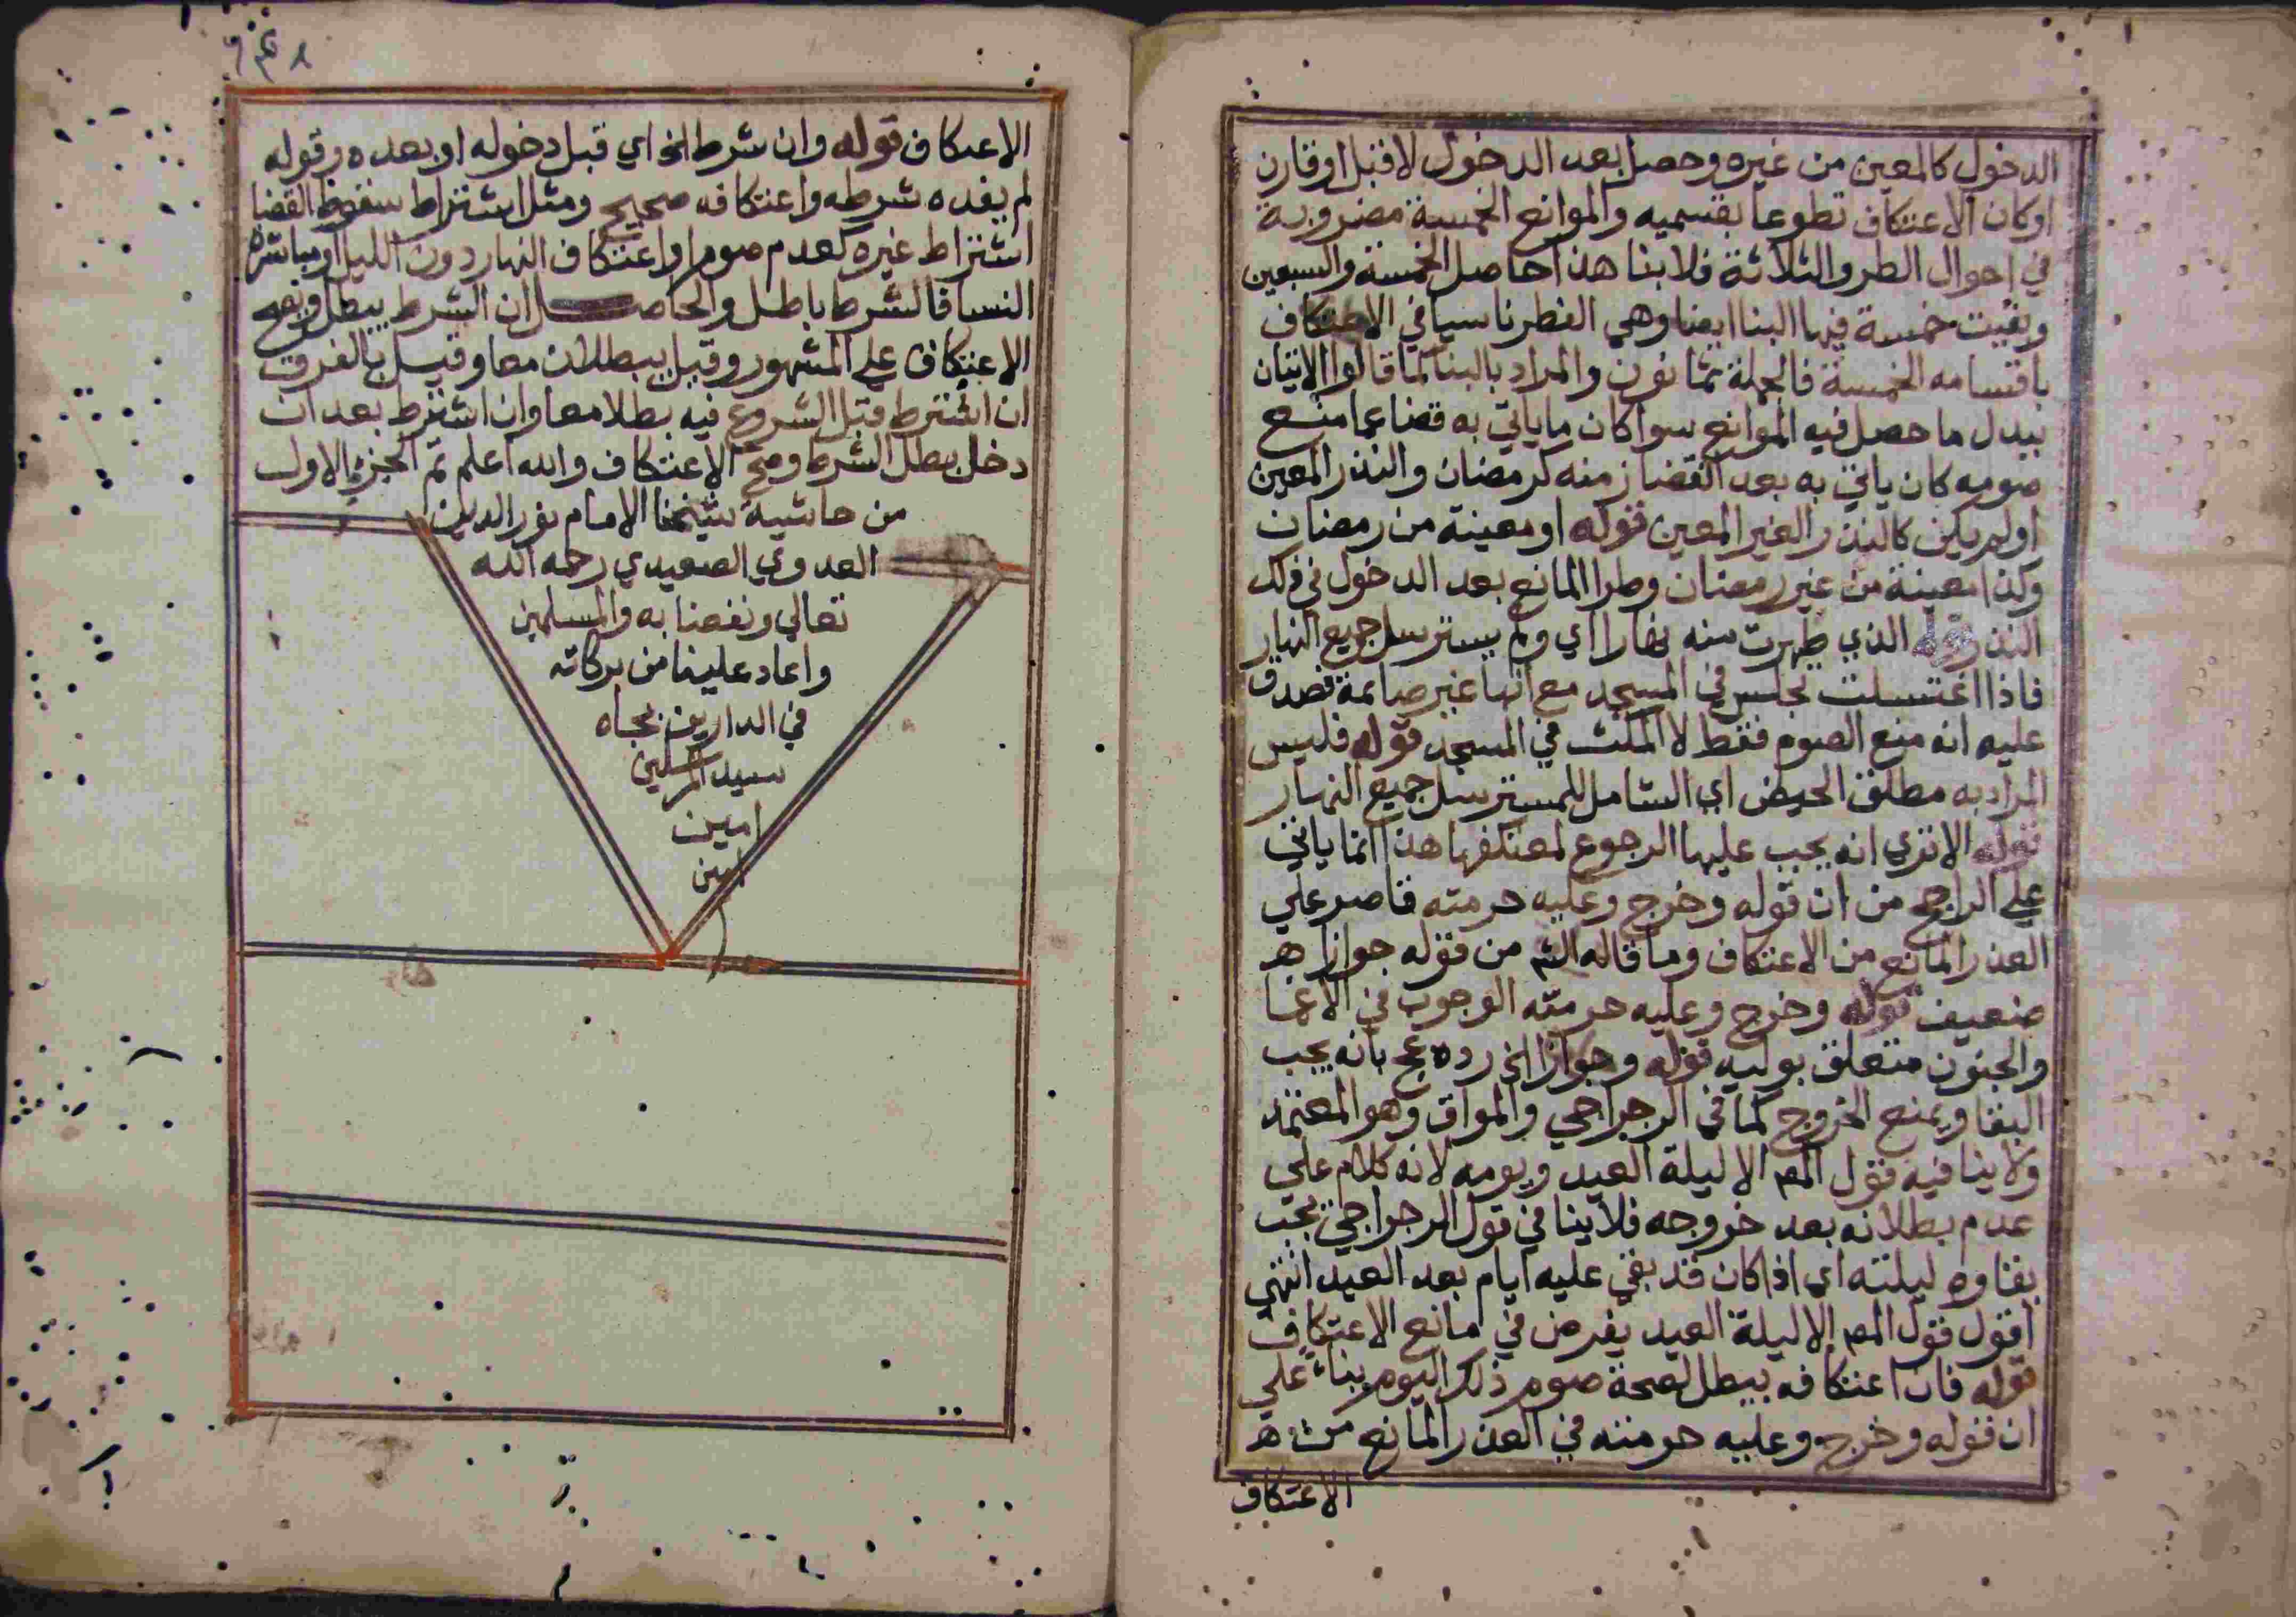 الدخول كالمعين من غيره وحصل بعد الدخول لا قبل او قارن
او كان الاعتكاف تطوعا بقسميه والموانع الخمسة مضروبة
في احوال الطرو الثلاثة فلا بنا هذا حاصل الخمسة والسبعين
وبقيت خمسة فيها البنا ايضا وهي الفطر ناسيا في الاعتكاف
باقسامه الخمسة فالجملة ثمانون والمراد بالبنا كما قالوا الاتيان
ببدل ما حصل فيه الموانع سوا كان ما ياتي به قضا عما منع
صومه كان ياتي به بعد انقضا زمنه كرمضان والنذر المعين
اولم يكن كالنذر الغير المعين قوله او معينة من رمضان
وكذا معينة من غير رمضان وطرا المانع بعد الدخول في ذلك
النذر قوله الذي طهرت منه نهارا اي ولم يسترسل جميع النهار
فاذا اغتسلت تجلس في المسجد مع انها غير صائمة فصدق
عليه انه منع الصوم فقط لا المكث في المسجد قوله فليس
المراد به مطلق الحيض اي الشامل للمسترسل جميع النهار
قوله الاتري انه يجب عليها الرجوع لمعتكفها هذا انما ياتي
علي الراجح من ان قوله وخرج وعليه حرمته قاصر علي
العذر المانع من الاعتكاف وما قاله الشم من قوله جوازا هـ
ضعيف قوله وخرج وعليه حرمته الوجوب في الاغما
والجنون متعلق بوليه قوله وجوازا الخ رده عج بانه يجب
البقا ويمنع الخروج كما في الرجراجي والمواق وهو المعتمد
ولا ينافيه قول المص الا ليلة العيد ويومه لانه كلام علي
عدم بطلانه بعد خروجه فلا ينافي قول الرجراجي يجب
بقاوه ليلته اي اذا كان قد بقي عليه ايام بعد العيد انتهي
اقول قول المص الا ليلة العيد يفرض في مانع الاعتكاف
قوله فان اعتكافه يبطل لصحة صوم ذلك اليوم بناء علي
ان قوله وخرج وعليه حرمته في العذر المانع من هـ
الاعتكاف
الاعتكاف قوله وان شرط الخ اي قبل دخوله او بعده وقوله
لم يفده شرطه واعتكافه صحيح ومثل اشتراط سقوط القضا
اشتراط غيره كعدم صوم او اعتكاف النهار دون الليل او مباشرة
النسا فالشرط باطل والحاصل ان الشرط يبطل ويصح
الاعتكاف علي المشهور وقيل يبطلان معا وقيل بالفرق
ان اشترط قبل الشروع فيه بطلا معا وان اشترط بعد ان
دخل بطل الشرط وصح الاعتكاف والله اعلم تم الجزء الاول
من حاشية شيخنا الامام نور الدين
العدوي الصعيدي رحمه الله
تعالي ونفعنا به والمسلمين
واعاد علينا من بركاته
في الدارين بجاه
سيد المرسلين
امين
امين